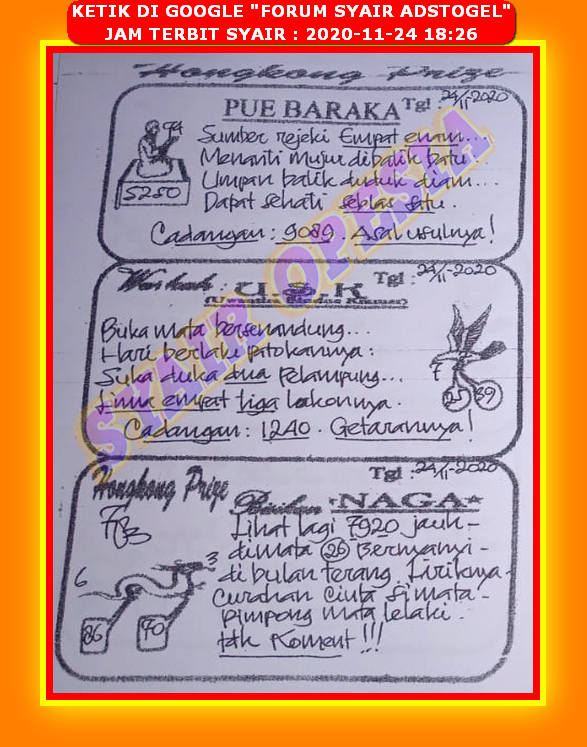 KETIK DI GOOGLE "FORUM SYAIR ADSTOGEL"
JAM TERBIT SYAIR : 2020-11-24 18:26
Hongkong Prize
PUE BARAKA Tgl : 24/11-2020
Sumber rejeki Empat enam...
Menanti mujur dibalik batu.
Umpan balik duduk diam...
Dapat sehati seblas satu.
5250
Cadangan : 9089 Asal usulnya!
U.S.K Tgl : 24/11-2020
Buka mata bersenandung...
Hari berlaku patokannya :
Suka duka dua Pelampung...
Lima empat tiga lakonnya.
Cadangan : 1240. Getarannya!
7
25 39
Hongkong Prize Tgl : 24/11-2020
Bisikan *NAGA*
Lihat lagi 7920 jauh -
dimata 26 Bernyanyi -
di bulan terang liriknya -
Curahan Cinta simata -
pimpong mata lelaki.
tdk Koment!!!
6
3
86 70
SYAIR OPESIA